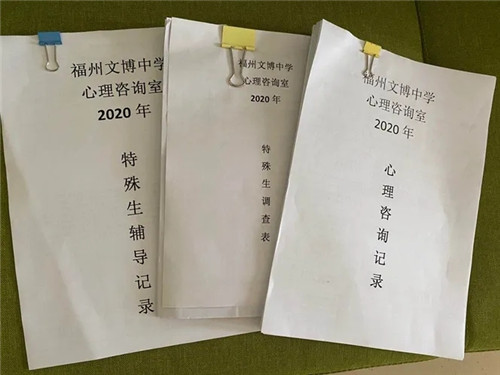 福州文博中学
心理咨询室
2020 年
特殊生辅导记录
福州文博中学
心理咨询室
2020 年
特殊生调查表
福州文博中学
心理咨询室
2020 年
心理咨询记录